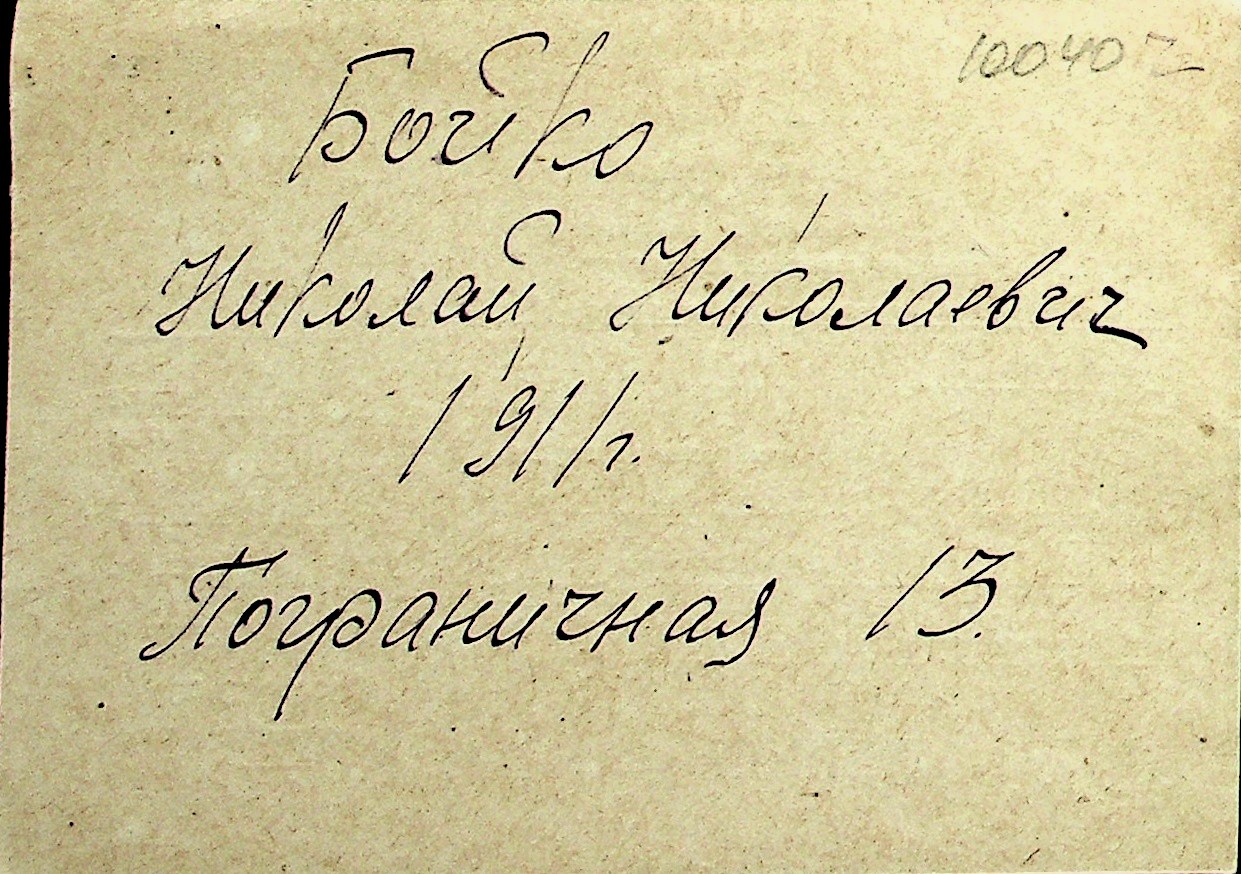 Бойко
Николай Николаевич
1911г.
Пограничная 13.